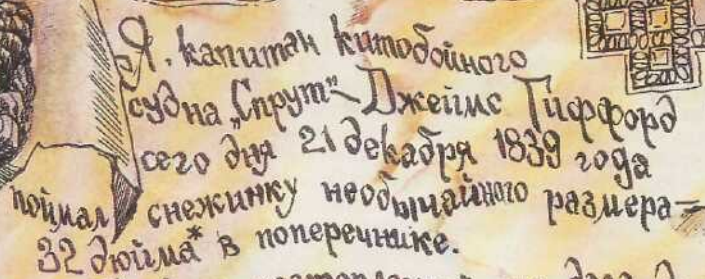 Я, капитан китобойного
судна „Спрут“ – Джеймс Гиффорд
сего дня 21 декабря 1839 года
поймал снежинку необычайного размера –
32 дюйма* в поперечнике.